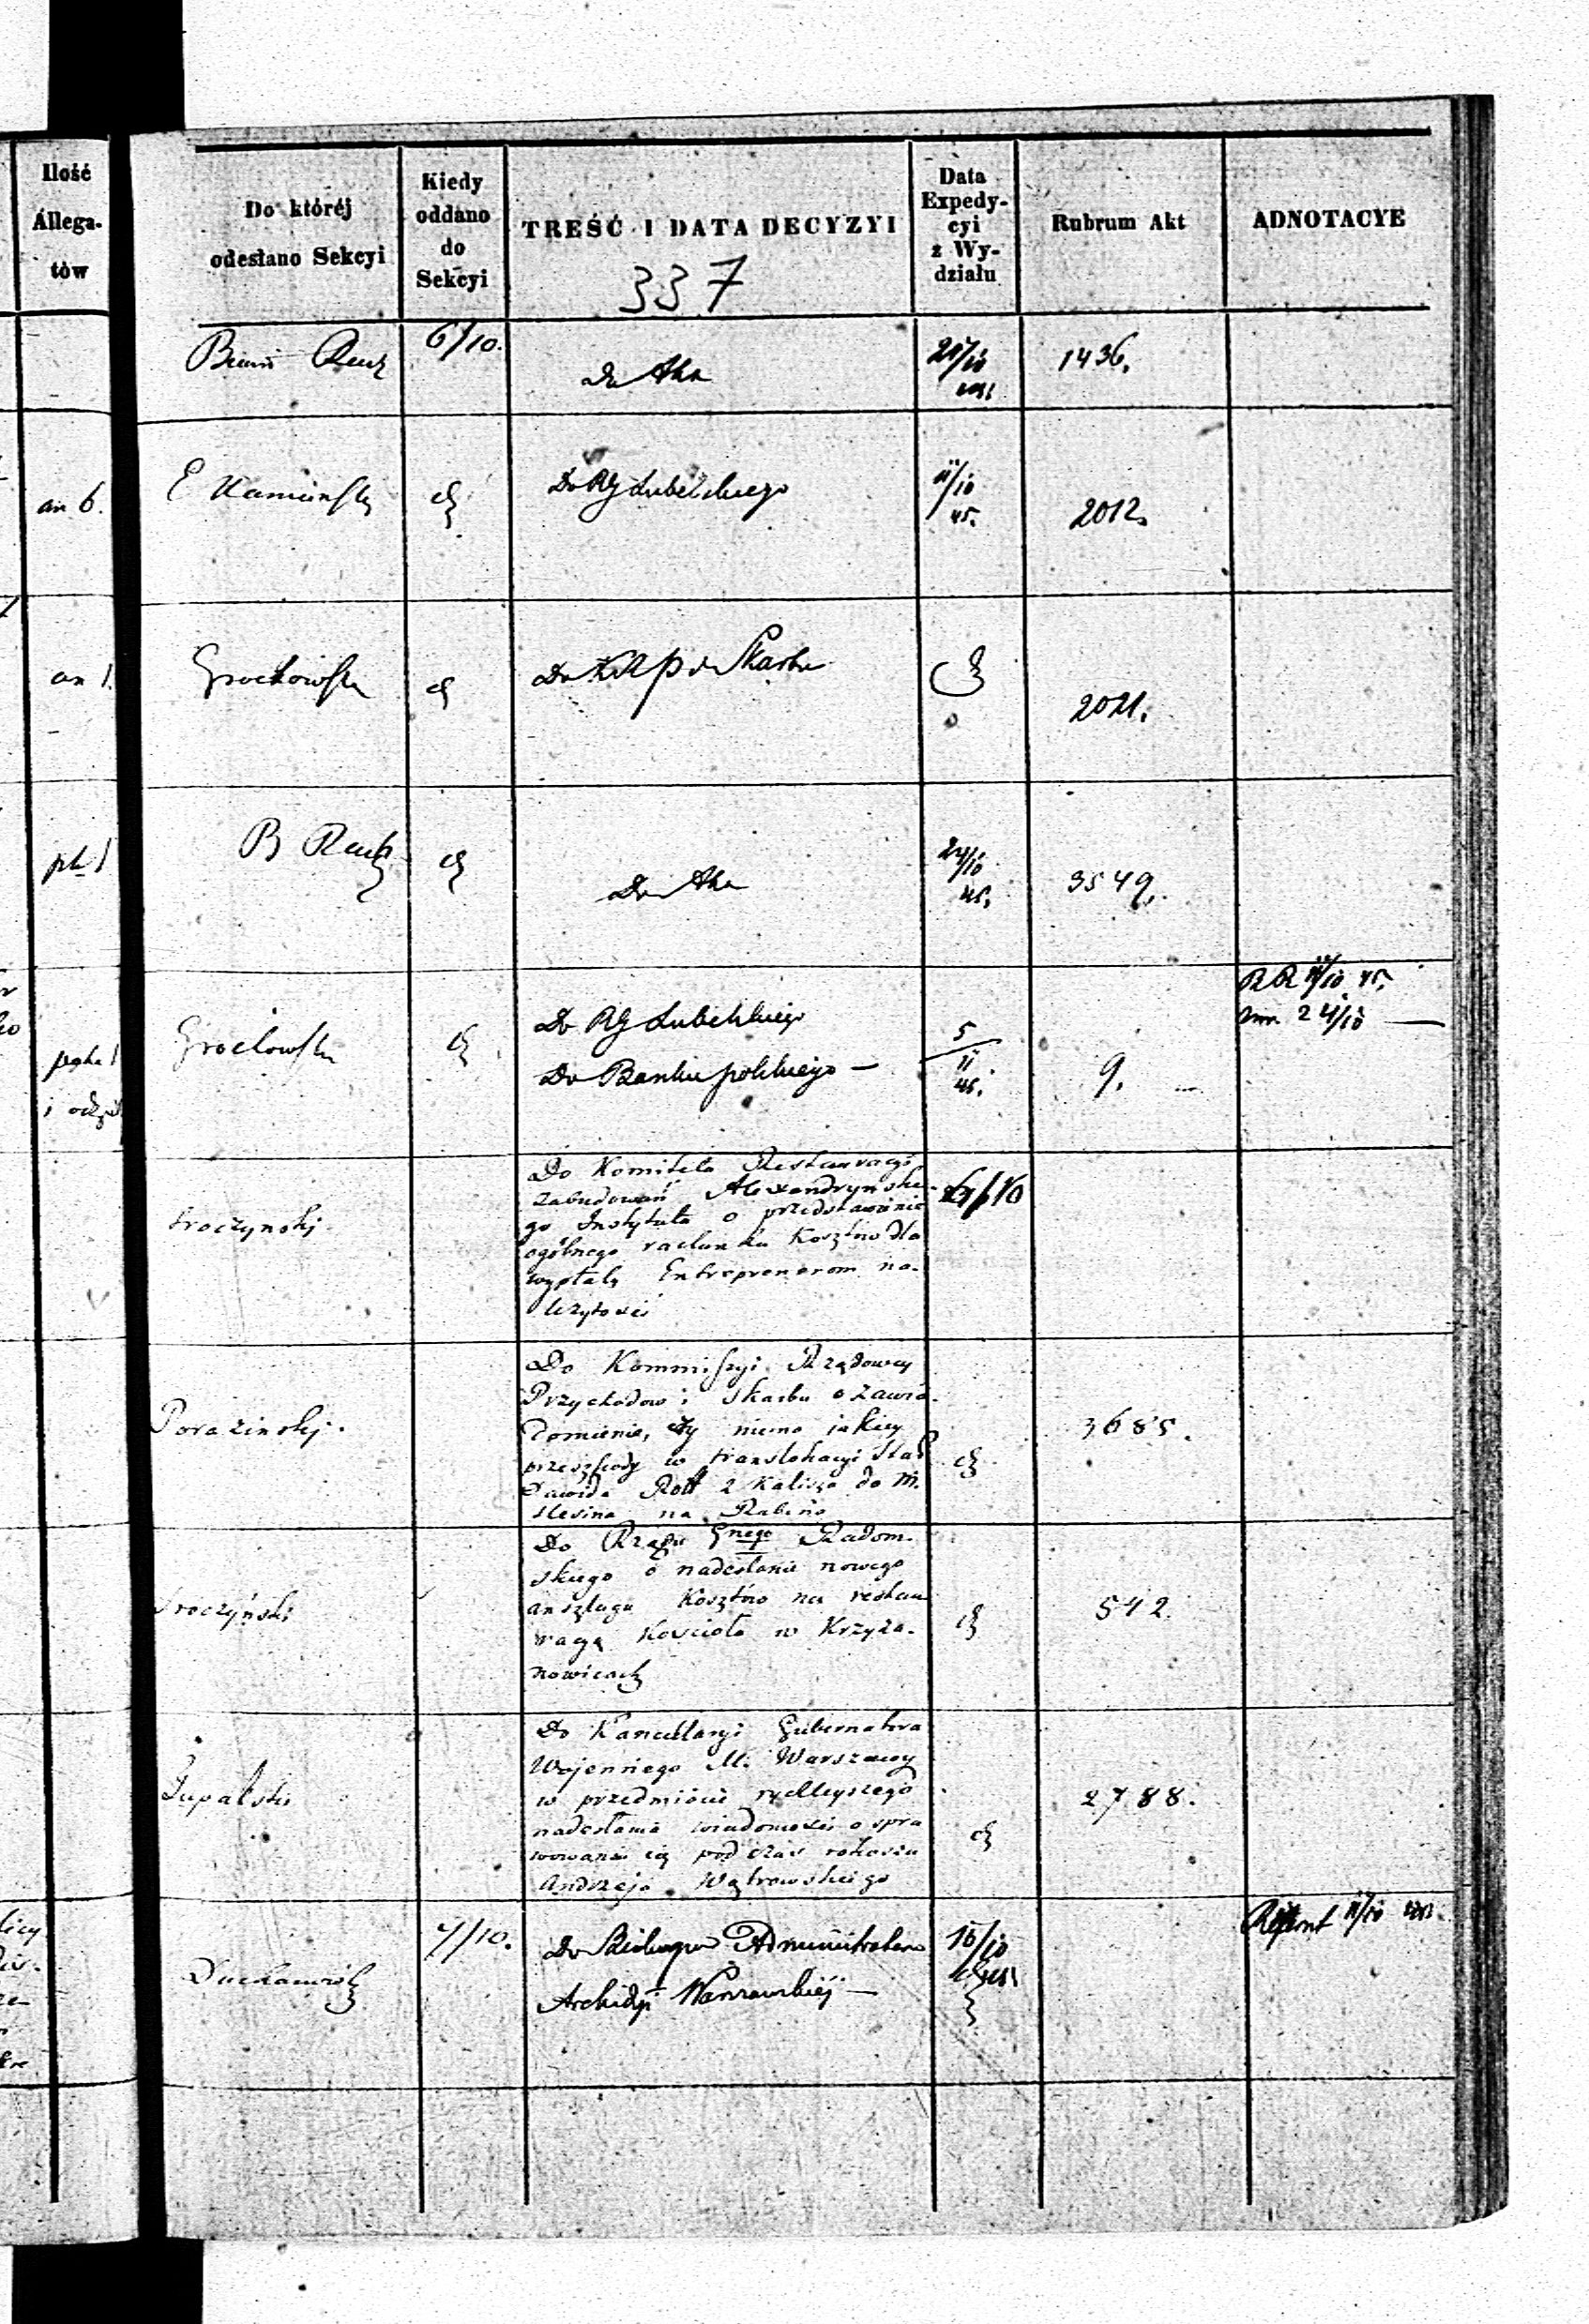 Ilość
Allega-
tów
Do któréj
odesłano Sekcyi
Kiedy
oddano
do
Sekcyi
TREŚĆ I DATA DECYZYI
337
Data
Expedy-
cyi
z Wy-
działu
Rubrum Akt
ADNOTACYE
6/10.
Do Akt
1436.
an 6.
E Kamiński
Do RG Lubelskiego
11/10
45.
2012.
an 1.
Grochowski
Do KRP i Skarbu
2021.
B
Do Akt
24/10
45.
3549.
Grochowski
Do RG Lubelskiego
Do Banku polskiego —
5
11
45.
9.
Do Komitetu Restauracyi
zabudowań Alexandryńskie-
go Instytutu o przedstawienie
ogólnego rachunku kosztów dla
wypłaty Entreprenerom na-
leżytości
Do Kommissyi Rządowey
Przychodów i Skarbu o zawia-
domienie, czy niema jakiey
przeszkody w translokacyi Star
Dawida Rott z Kalisza do M.
Slesina na Rabina
Porazinski.
3685.
Do Rządu Gnego Radom-
skiego o nadesłanie nowego
anszlagu kosztów na restau
racyą Kościoła w Krzyża-
nowicach
Sroczyński
542.
Do Kancellaryi Gubernatora
Wojennego M. Warszawy
w przedmiocie rychleyszego
nadesłania wiadomości o spra
wowaniu się podczas rokoszu
Andrzeja Wątrowskiego
Żupański
2788.
7/10.
Do Biskupa Administratora
Archidyi Warszawskiéj —
16/10